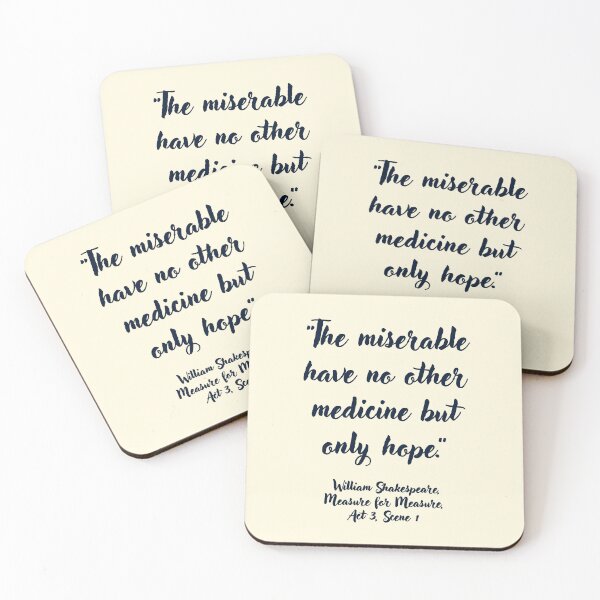 "The miserable
have no other
medicine but
e."
"The miserable
have no other
medicine but
only hope."
"The miserable
have no other
medicine but
only hope"
William Shakespea
Measure for M
Act 3, Sce
"The miserable
have no other
medicine but
only hope."
William Shakespeare,
Measure for Measure,
Act 3, Scene 1